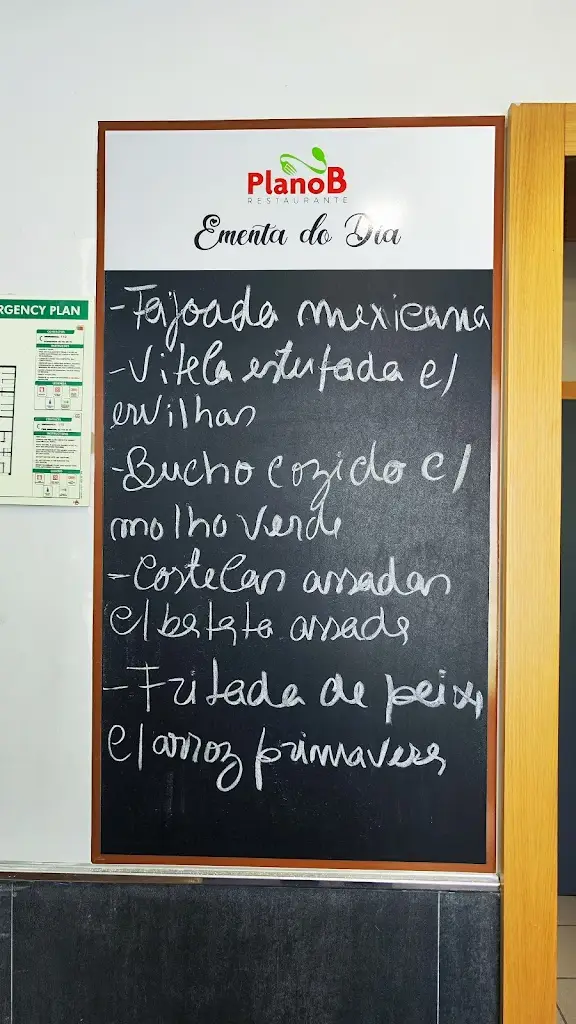 PlanoB
RESTAURANTE
Ementa do Dia
RGENCY PLAN
-Fajoada mexicana
-Vitela estufada c/
ervilhas
-Bucho cozido c/
molho verde
-Costelas assadas
c/batata assada
-Fritada de peixe
c/arroz primavera